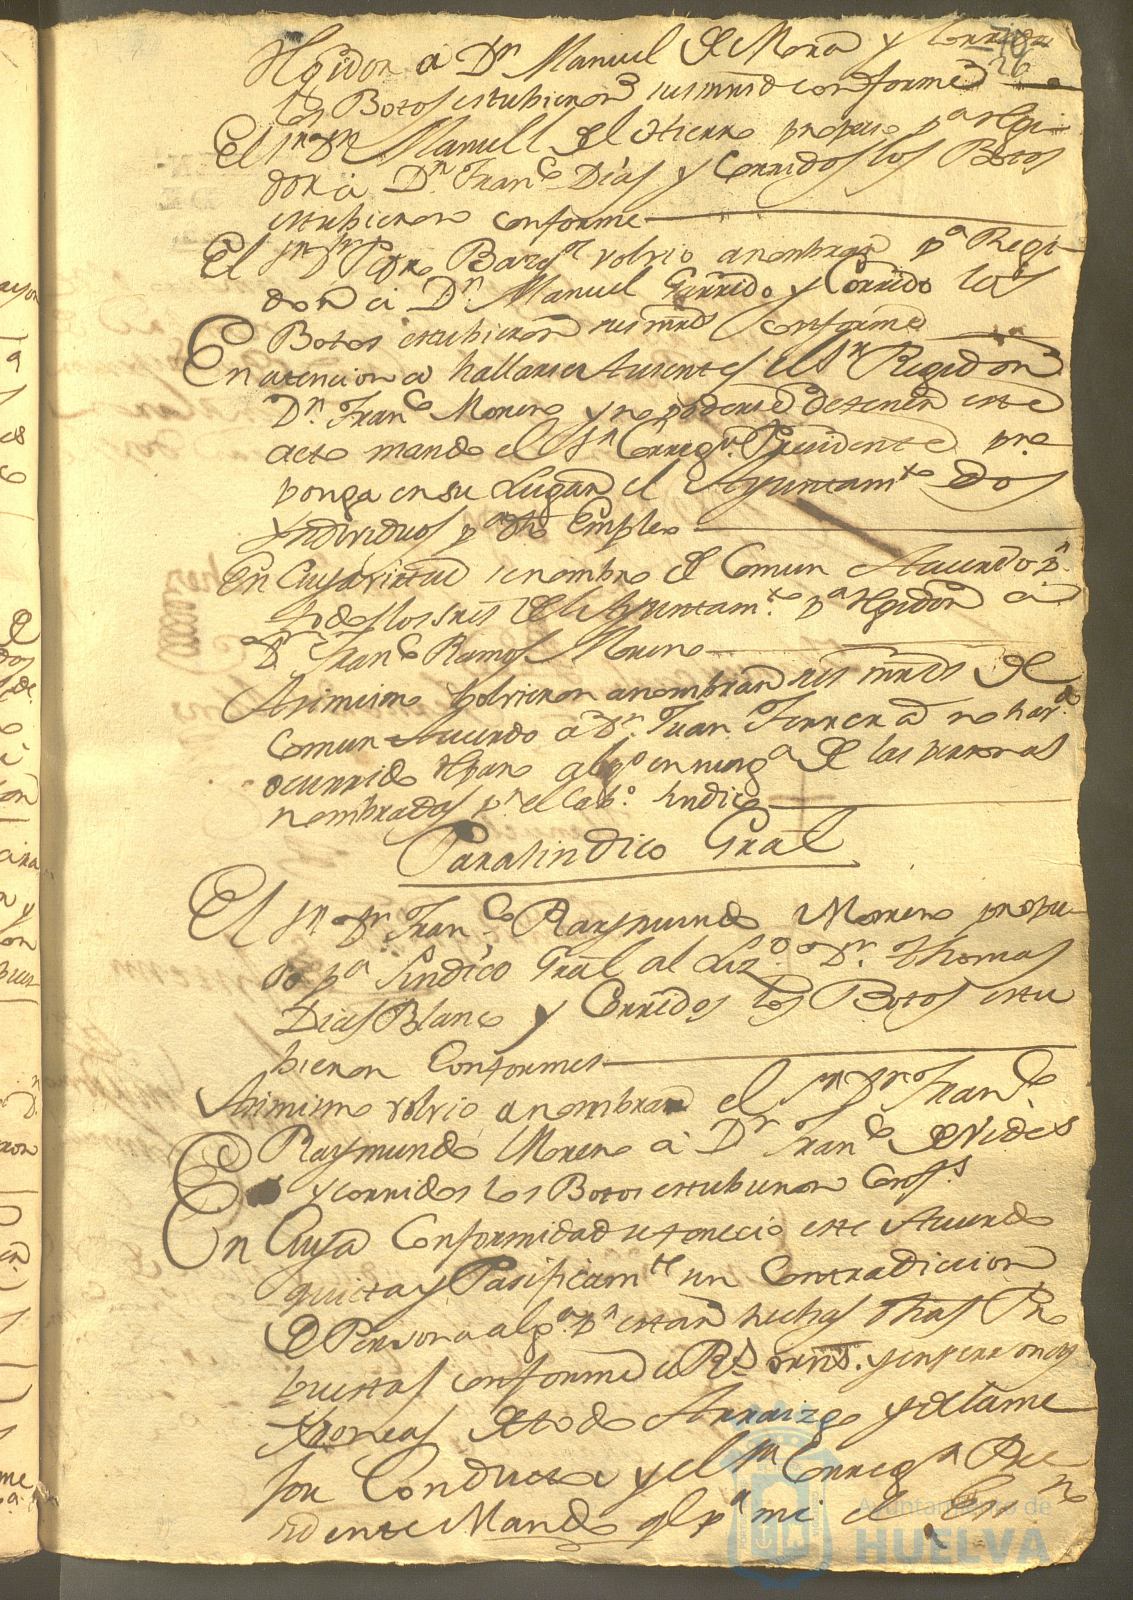 Rejidor a Dn. Manuel de Mora y corridos
los Botos estubieron sus mrds conformes
El sr. Dn. Manuel del Hierro propuso pa. Reji-
dor a Dn. Franco. Dias y Corridos los Botos
estubieron conforme
El sr. Dn. Pedro volvio a nombrar pa. Regi-
dor a Dn. Manuel Garrido y Corrido los
Botos estubieron sus mrds conforme
En atencion a hallarse Ausente el Sr. Regidor
Dn. Franco. Moreno y no poderse detener este
acto mando el Sr. Corregr. Presidente pro
ponga en su Lugar el Ayuntamto. Dos
Yndividuos pa. dho Empleo
En Cuya virtud se nombro de Comun Acuerdo pr.
todos los sres del Ayuntamto. pa. Rejidor a
Dn. Franco. Ramos Moreno
Asimismo volvieron a nombrar sus mrds de
comun Acuerdo a Dn. Juan Ferrer
ocurrido reparo algo en ninga. de las personas
nombradas pr. el Cabo. Sindico
Para Sindico Gral
El sr. Dn. Franco. Raymundo Moreno propu-
so pa. Sindico Gral al Lizdo. Dn. Thomas
Dias Blanco y Corridos los Botos estu
bieron Conformes
Asimismo volvio a nombrar el sr. Dn. Franco.
Raymundo Moreno a Dn. Franco. de Vides
y corridos los Botos estubieron Confs.
En Cuya Conformidad se fenecio este Acuerdo
quieta y Pasificamte sin Contradiccion
de Persona alga. pr. estar hechas dhas Pro
puestas conforme a Rs. ornes. y en personas
Ydoneas de todo Arraizgo y de la me
jor Conducta y el sr. Corregr. Pre
sidente Mando qe. pr. mi el Esno
Ayuntamiento de
HUELVA